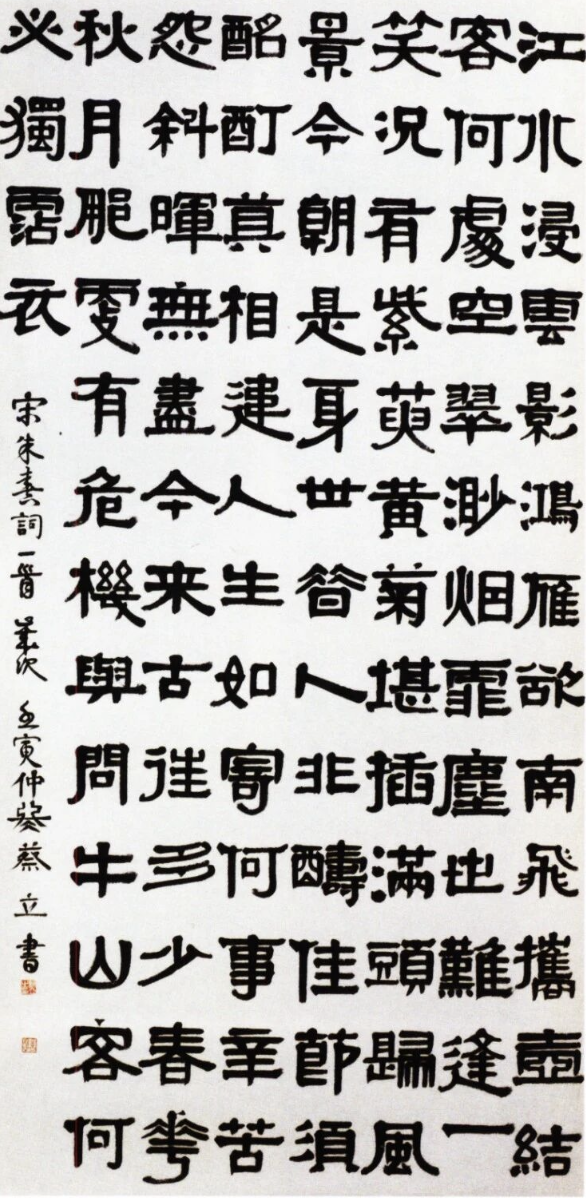 江水浸雲影鴻雁欲南飛攜壺結
客何處空翠渺烟霏塵世難逢一
笑況有紫萸黃菊堪插滿頭歸風
景今朝是身世昔人非醻佳節須
酩酊真相違人生如寄何事辛苦
怨斜暉無盡今来古往多少春花
秋月那更有危機與問牛山客何
必獨霑衣
宋朱熹詞一首 歲次壬寅仲 蔡立書